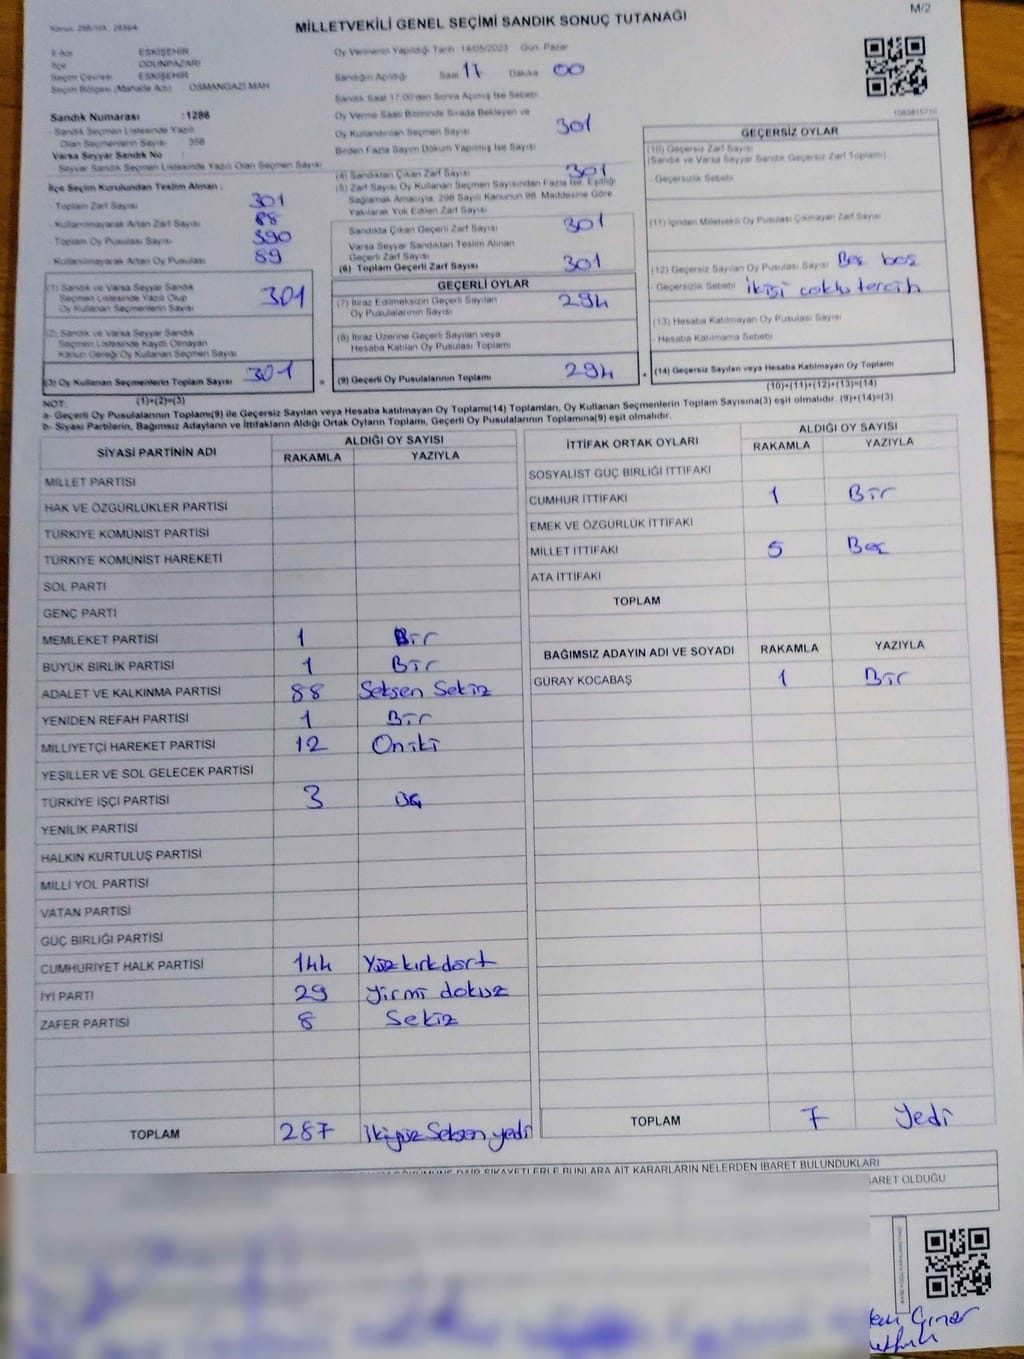 M/2
MİLLETVEKİLİ GENEL SEÇİMİ SANDIK SONUÇ TUTANAĞI
İl Adı : ESKİŞEHİR
İlçe : ODUNPAZARI
Seçim Çevresi : ESKİŞEHİR
Seçim Bölgesi (Mahalle Adı) : OSMANGAZİ MAH
Sandık Numarası :1286
- Sandık Seçmen Listesinde Yazılı
Olan Seçmenlerin Sayısı : 358
Varsa Seyyar Sandık No :
Seyyar Sandık Seçmen Listesinde Yazılı Olan Seçmen Sayısı :
İlçe Seçim Kurulundan Teslim Alınan :
- Toplam Zarf Sayısı 301
- Kullanılmayarak Artan Zarf Sayısı 88
- Toplam Oy Pusulası Sayısı 390
- Kullanılmayarak Artan Oy Pusulası 89
(1) Sandık ve Varsa Seyyar Sandık
Seçmen Listesinde Yazılı Olup
Oy Kullanan Seçmenlerin Sayısı 301
(2) Sandık ve Varsa Seyyar Sandık
Seçmen Listesinde Kayıtlı Olmayan
Kanun Gereği Oy Kullanan Seçmen Sayısı
(3) Oy Kullanan Seçmenlerin Toplam Sayısı 301
(1)+(2)=(3)
Oy Vermenin Yapıldığı Tarih 14/05/2023 Gün: Pazar
Sandığın Açıldığı Saat 17 Dakika 00
Sandık Saat 17:00'den Sonra Açılmış İse Sebebi
Oy Verme Saati Bitiminde Sırada Bekleyen ve
Oy Kullandırılan Seçmen Sayısı 301
Birden Fazla Sayım Döküm Yapılmış İse Sayısı
(4) Sandıktan Çıkan Zarf Sayısı 301
(5) Zarf Sayısı Oy Kullanan Seçmen Sayısından Fazla İse, Eşitliği
Sağlamak Amacıyla, 298 Sayılı Kanunun 98. Maddesine Göre
Yakılarak Yok Edilen Zarf Sayısı
Sandıkta Çıkan Geçerli Zarf Sayısı 301
Varsa Seyyar Sandıktan Teslim Alınan
Geçerli Zarf Sayısı
(6) Toplam Geçerli Zarf Sayısı 301
GEÇERLİ OYLAR
(7) İtiraz Edilmeksizin Geçerli Sayılan
Oy Pusulalarının Sayısı 294
(8) İtiraz Üzerine Geçerli Sayılan veya
Hesaba Katılan Oy Pusulası Toplamı
= (9) Geçerli Oy Pusulalarının Toplamı 294
1083815710
GEÇERSİZ OYLAR
(10) Geçersiz Zarf Sayısı
(Sandık ve Varsa Seyyar Sandık Geçersiz Zarf Toplamı)
- Geçersizlik Sebebi
(11) İçinden Milletvekili Oy Pusulası Çıkmayan Zarf Sayısı
(12) Geçersiz Sayılan Oy Pusulası Sayısı Beş boş
- Geçersizlik Sebebi ikisi çoklu tercih
(13) Hesaba Katılmayan Oy Pusulası Sayısı
- Hesaba Katılmama Sebebi
+ (14) Geçersiz Sayılan veya Hesaba Katılmayan Oy Toplamı
(10)+(11)+(12)+(13)=(14)
NOT:
a- Geçerli Oy Pusulalarının Toplamı(9) ile Geçersiz Sayılan veya Hesaba katılmayan Oy Toplamı(14) Toplamları, Oy Kullanan Seçmenlerin Toplam Sayısına(3) eşit olmalıdır. (9)+(14)=(3)
b- Siyasi Partilerin, Bağımsız Adayların ve İttifakların Aldığı Ortak Oyların Toplamı, Geçerli Oy Pusulalarının Toplamına(9) eşit olmalıdır.
SİYASİ PARTİNİN ADI ALDIĞI OY SAYISI
RAKAMLA YAZIYLA
MİLLET PARTİSİ
HAK VE ÖZGÜRLÜKLER PARTİSİ
TÜRKİYE KOMÜNİST PARTİSİ
TÜRKİYE KOMÜNİST HAREKETİ
SOL PARTİ
GENÇ PARTİ
MEMLEKET PARTİSİ 1 Bir
BÜYÜK BİRLİK PARTİSİ 1 Bir
ADALET VE KALKINMA PARTİSİ 88 Seksen Sekiz
YENİDEN REFAH PARTİSİ 1 Bir
MİLLİYETÇİ HAREKET PARTİSİ 12 Oniki
YEŞİLLER VE SOL GELECEK PARTİSİ
TÜRKİYE İŞÇİ PARTİSİ 3 Üç
YENİLİK PARTİSİ
HALKIN KURTULUŞ PARTİSİ
MİLLİ YOL PARTİSİ
VATAN PARTİSİ
GÜÇ BİRLİĞİ PARTİSİ
CUMHURİYET HALK PARTİSİ 144 Yüz kırk dört
İYİ PARTİ 29 Yirmi dokuz
ZAFER PARTİSİ 8 Sekiz
TOPLAM 287 İkiyüz Seksen yedi
İTTİFAK ORTAK OYLARI ALDIĞI OY SAYISI
RAKAMLA YAZIYLA
SOSYALİST GÜÇ BİRLİĞİ İTTİFAKI
CUMHUR İTTİFAKI 1 Bir
EMEK VE ÖZGÜRLÜK İTTİFAKI
MİLLET İTTİFAKI 5 Beş
ATA İTTİFAKI
TOPLAM
BAĞIMSIZ ADAYIN ADI VE SOYADI RAKAMLA YAZIYLA
GÜRAY KOCABAŞ 1 Bir
TOPLAM 7 Yedi
DÖKÜMÜNE DAİR ŞİKAYETLERLE BUNLARA AİT KARARLARIN NELERDEN İBARET BULUNDUKLARI
BARET OLDUĞU